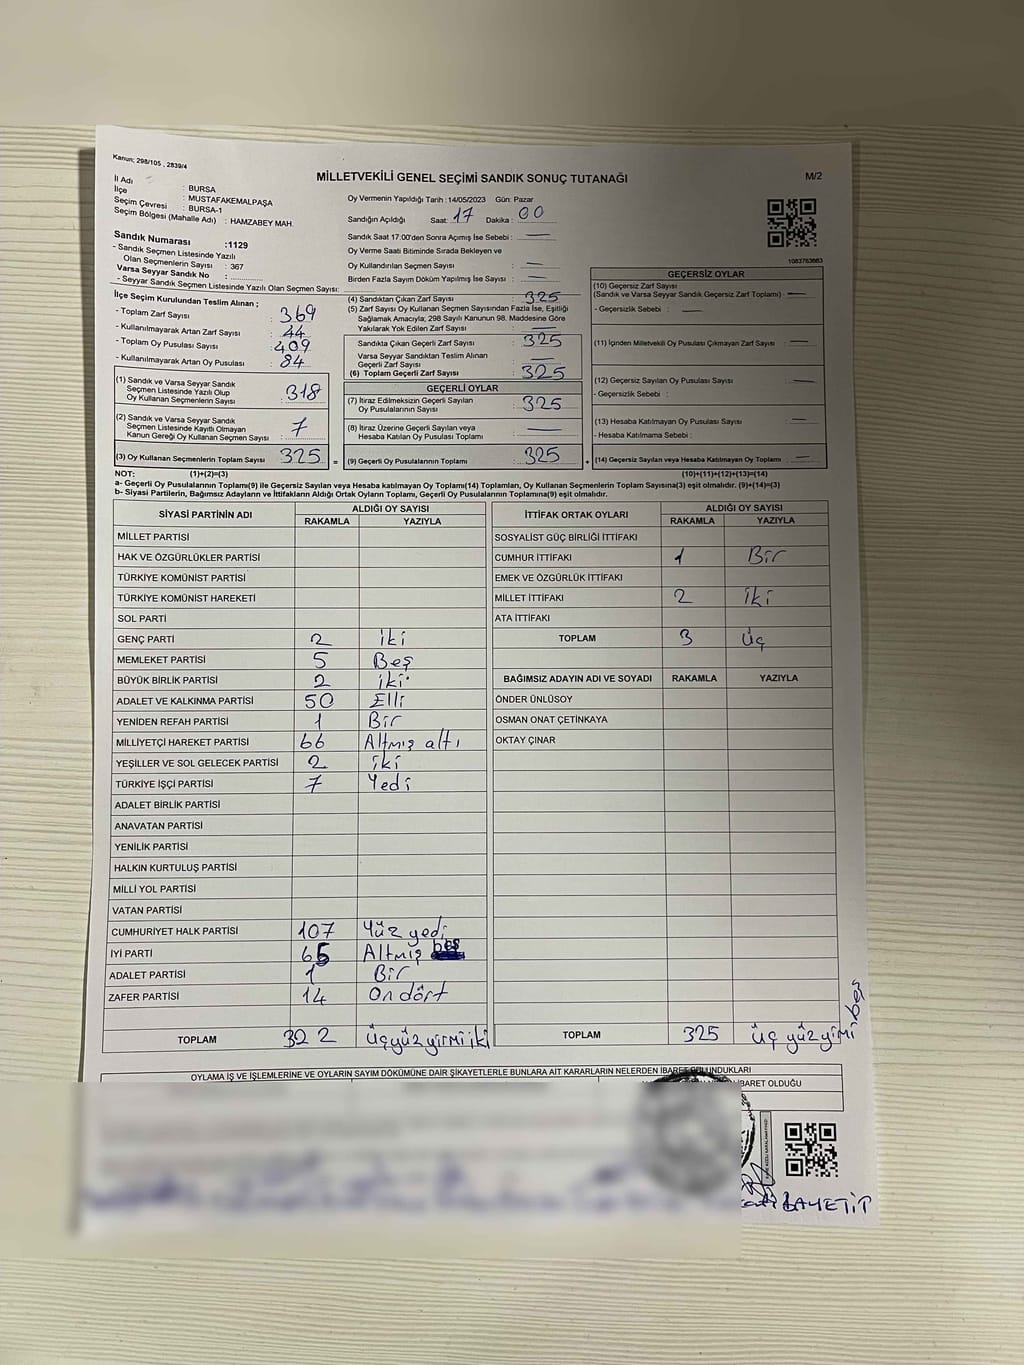 Kanun; 298/105 , 2839/4
MİLLETVEKİLİ GENEL SEÇİMİ SANDIK SONUÇ TUTANAĞI
M/2
İl Adı : BURSA
İlçe : MUSTAFAKEMALPAŞA
Seçim Çevresi : BURSA-1
Seçim Bölgesi (Mahalle Adı) : HAMZABEY MAH.
Sandık Numarası :1129
- Sandık Seçmen Listesinde Yazılı
Olan Seçmenlerin Sayısı : 367
Varsa Seyyar Sandık No :
- Seyyar Sandık Seçmen Listesinde Yazılı Olan Seçmen Sayısı:
Oy Vermenin Yapıldığı Tarih : 14/05/2023 Gün: Pazar
Sandığın Açıldığı Saat: 17 Dakika : 00
Sandık Saat 17.00'den Sonra Açımış İse Sebebi : —
Oy Verme Saati Bitiminde Sırada Bekleyen ve
Oy Kullandırılan Seçmen Sayısı : —
Birden Fazla Sayım Döküm Yapılmış İse Sayısı : —
1083763663
İlçe Seçim Kurulundan Teslim Alınan ;
- Toplam Zarf Sayısı : 369
- Kullanılmayarak Artan Zarf Sayısı : 44
- Toplam Oy Pusulası Sayısı : 409
- Kullanılmayarak Artan Oy Pusulası : 84
(1) Sandık ve Varsa Seyyar Sandık
Seçmen Listesinde Yazılı Olup
Oy Kullanan Seçmenlerin Sayısı : 318
(2) Sandık ve Varsa Seyyar Sandık
Seçmen Listesinde Kayıtlı Olmayan
Kanun Gereği Oy Kullanan Seçmen Sayısı : 7
(3) Oy Kullanan Seçmenlerin Toplam Sayısı : 325 =
(4) Sandıktan Çıkan Zarf Sayısı : 325
(5) Zarf Sayısı Oy Kullanan Seçmen Sayısından Fazla İse, Eşitliği
Sağlamak Amacıyla; 298 Sayılı Kanunun 98. Maddesine Göre
Yakılarak Yok Edilen Zarf Sayısı : —
Sandıkta Çıkan Geçerli Zarf Sayısı : 325
Varsa Seyyar Sandıktan Teslim Alınan
Geçerli Zarf Sayısı : —
(6) Toplam Geçerli Zarf Sayısı : 325
GEÇERLİ OYLAR
(7) İtiraz Edilmeksizin Geçerli Sayılan
Oy Pusulalarının Sayısı : 325
(8) İtiraz Üzerine Geçerli Sayılan veya
Hesaba Katılan Oy Pusulası Toplamı : —
(9) Geçerli Oy Pusulalarının Toplamı : 325 +
GEÇERSİZ OYLAR
(10) Geçersiz Zarf Sayısı
(Sandık ve Varsa Seyyar Sandık Geçersiz Zarf Toplamı) : —
- Geçersizlik Sebebi : —
(11) İçinden Milletvekili Oy Pusulası Çıkmayan Zarf Sayısı : —
(12) Geçersiz Sayılan Oy Pusulası Sayısı : —
- Geçersizlik Sebebi :
(13) Hesaba Katılmayan Oy Pusulası Sayısı : —
- Hesaba Katılmama Sebebi :
(14) Geçersiz Sayılan veya Hesaba Katılmayan Oy Toplamı : —
NOT: (1)+(2)=(3) (10)+(11)+(12)+(13)=(14)
a- Geçerli Oy Pusulalarının Toplamı(9) ile Geçersiz veya Hesaba Katılmayan Oy Toplamı(14) Toplamları, Oy Kullanan Seçmenlerin Toplam Sayısına(3) eşit olmalıdır. (9)+(14)=(3)
b- Siyasi Partilerin, Bağımsız Adayların ve İttifakların Aldığı Ortak Oyların Toplamı, Geçerli Oy Pusulalarının Toplamına(9) eşit olmalıdır.
SİYASİ PARTİNİN ADI ALDIĞI OY SAYISI
RAKAMLA YAZIYLA
MİLLET PARTİSİ
HAK VE ÖZGÜRLÜKLER PARTİSİ
TÜRKİYE KOMÜNİST PARTİSİ
TÜRKİYE KOMÜNİST HAREKETİ
SOL PARTİ
GENÇ PARTİ 2 iki
MEMLEKET PARTİSİ 5 Beş
BÜYÜK BİRLİK PARTİSİ 2 iki
ADALET VE KALKINMA PARTİSİ 50 Elli
YENİDEN REFAH PARTİSİ 1 Bir
MİLLİYETÇİ HAREKET PARTİSİ 66 Altmış altı
YEŞİLLER VE SOL GELECEK PARTİSİ 2 iki
TÜRKİYE İŞÇİ PARTİSİ 7 Yedi
ADALET BİRLİK PARTİSİ
ANAVATAN PARTİSİ
YENİLİK PARTİSİ
HALKIN KURTULUŞ PARTİSİ
MİLLİ YOL PARTİSİ
VATAN PARTİSİ
CUMHURİYET HALK PARTİSİ 107 Yüz yedi
İYİ PARTİ 65 Altmış beş
ADALET PARTİSİ 1 Bir
ZAFER PARTİSİ 14 On dört
TOPLAM 322 üçyüzyirmiiki
İTTİFAK ORTAK OYLARI ALDIĞI OY SAYISI
RAKAMLA YAZIYLA
SOSYALİST GÜÇ BİRLİĞİ İTTİFAKI
CUMHUR İTTİFAKI 1 Bir
EMEK VE ÖZGÜRLÜK İTTİFAKI
MİLLET İTTİFAKI 2 iki
ATA İTTİFAKI
TOPLAM 3 üç
BAĞIMSIZ ADAYIN ADI VE SOYADI RAKAMLA YAZIYLA
ÖNDER ÜNLÜSOY
OSMAN ONAT ÇETİNKAYA
OKTAY ÇINAR
TOPLAM 325 üç yüz yimi beş
OYLAMA İŞ VE İŞLEMLERİNE VE OYLARIN SAYIM DÖKÜMÜNE DAİR ŞİKAYETLERLE BUNLARA AİT KARARLARIN NELERDEN İBARET BULUNDUKLARI
İBARET OLDUĞU